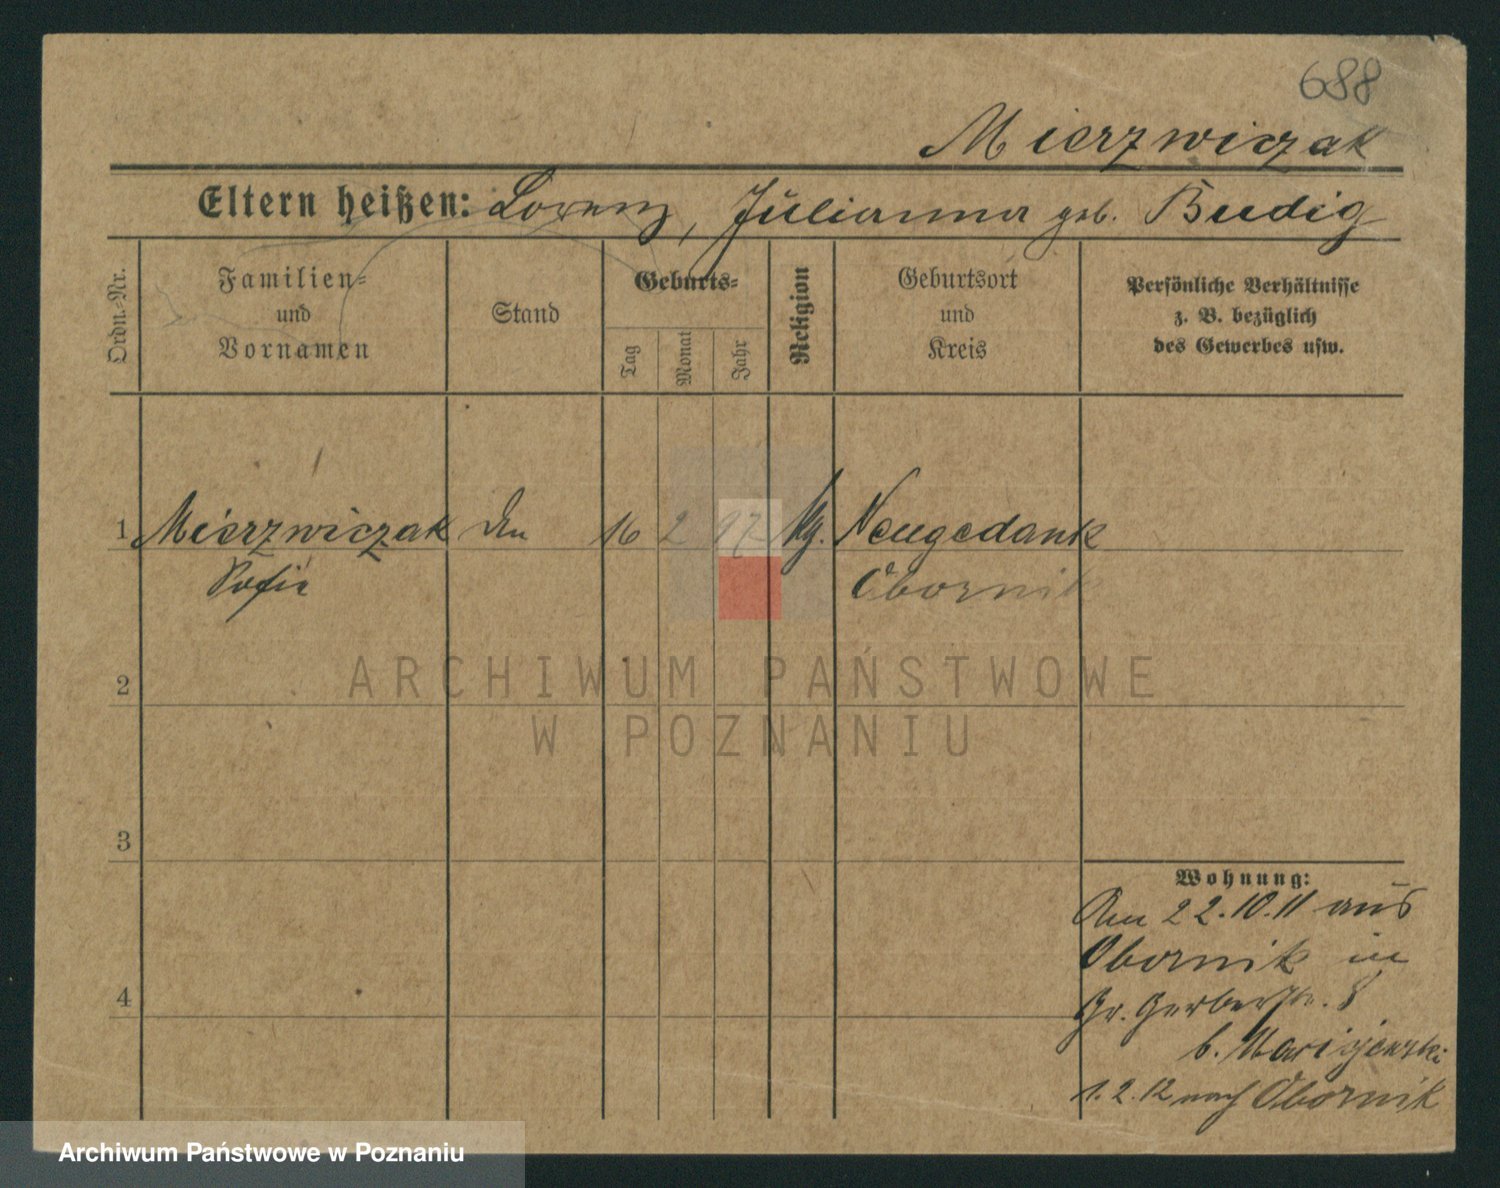 688
Mierzwiczak
Eltern heißen: Lorenz, Julianna geb. Budig
Ordn.-Nr.
Familien-
und
Vornamen
Stand
Geburts-
Tag
Monat
Jahr
Religion
Geburtsort
und
Kreis
Persönliche Verhältnisse
z. B. bezüglich
des Gewerbes usw.
1 Mierzwiczak 16 2 97 Neugedank
Sofie Obornik
ARCHIWUM PAŃSTWOWE
W POZNANIU
2
3
4
Wohnung:
Am 22.10.11 aus
Obornik in
Gr. Gerberstr. 8
b.
1.2.12 nach Obornik
Archiwum Państwowe w Poznaniu